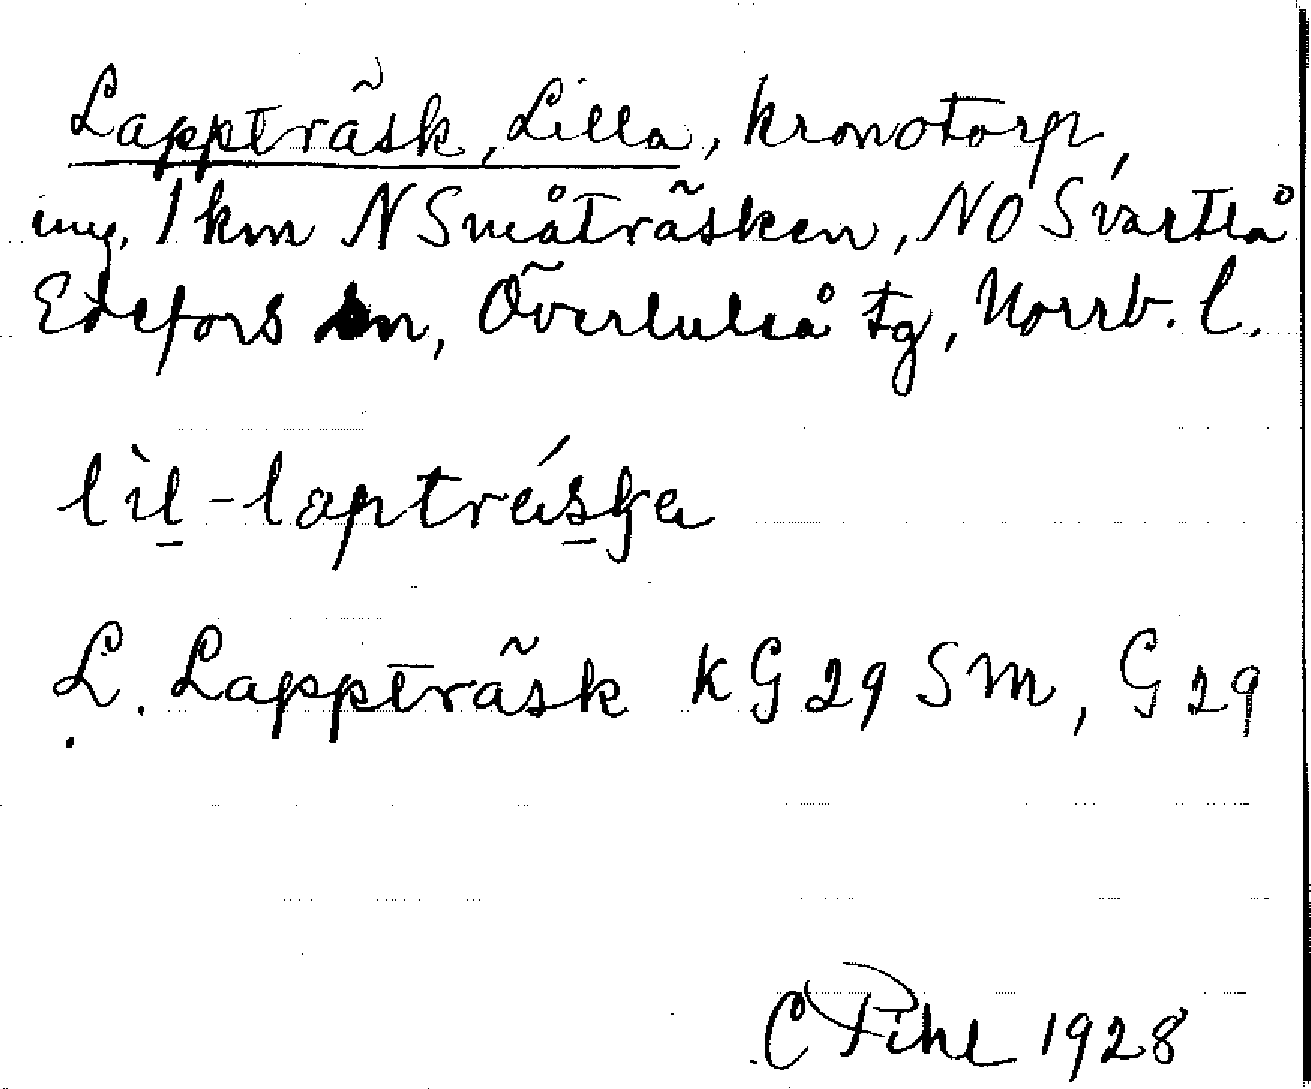 Lappträsk, Lilla, kronotorp,
ung. 1 km N Småträsken, NO Svartlå
Edefors sn, Överluleå tg, Norrb. l.
lìl-laptráska
L. Lappträsk KG 29 SM, G 29
C Pihl 1928